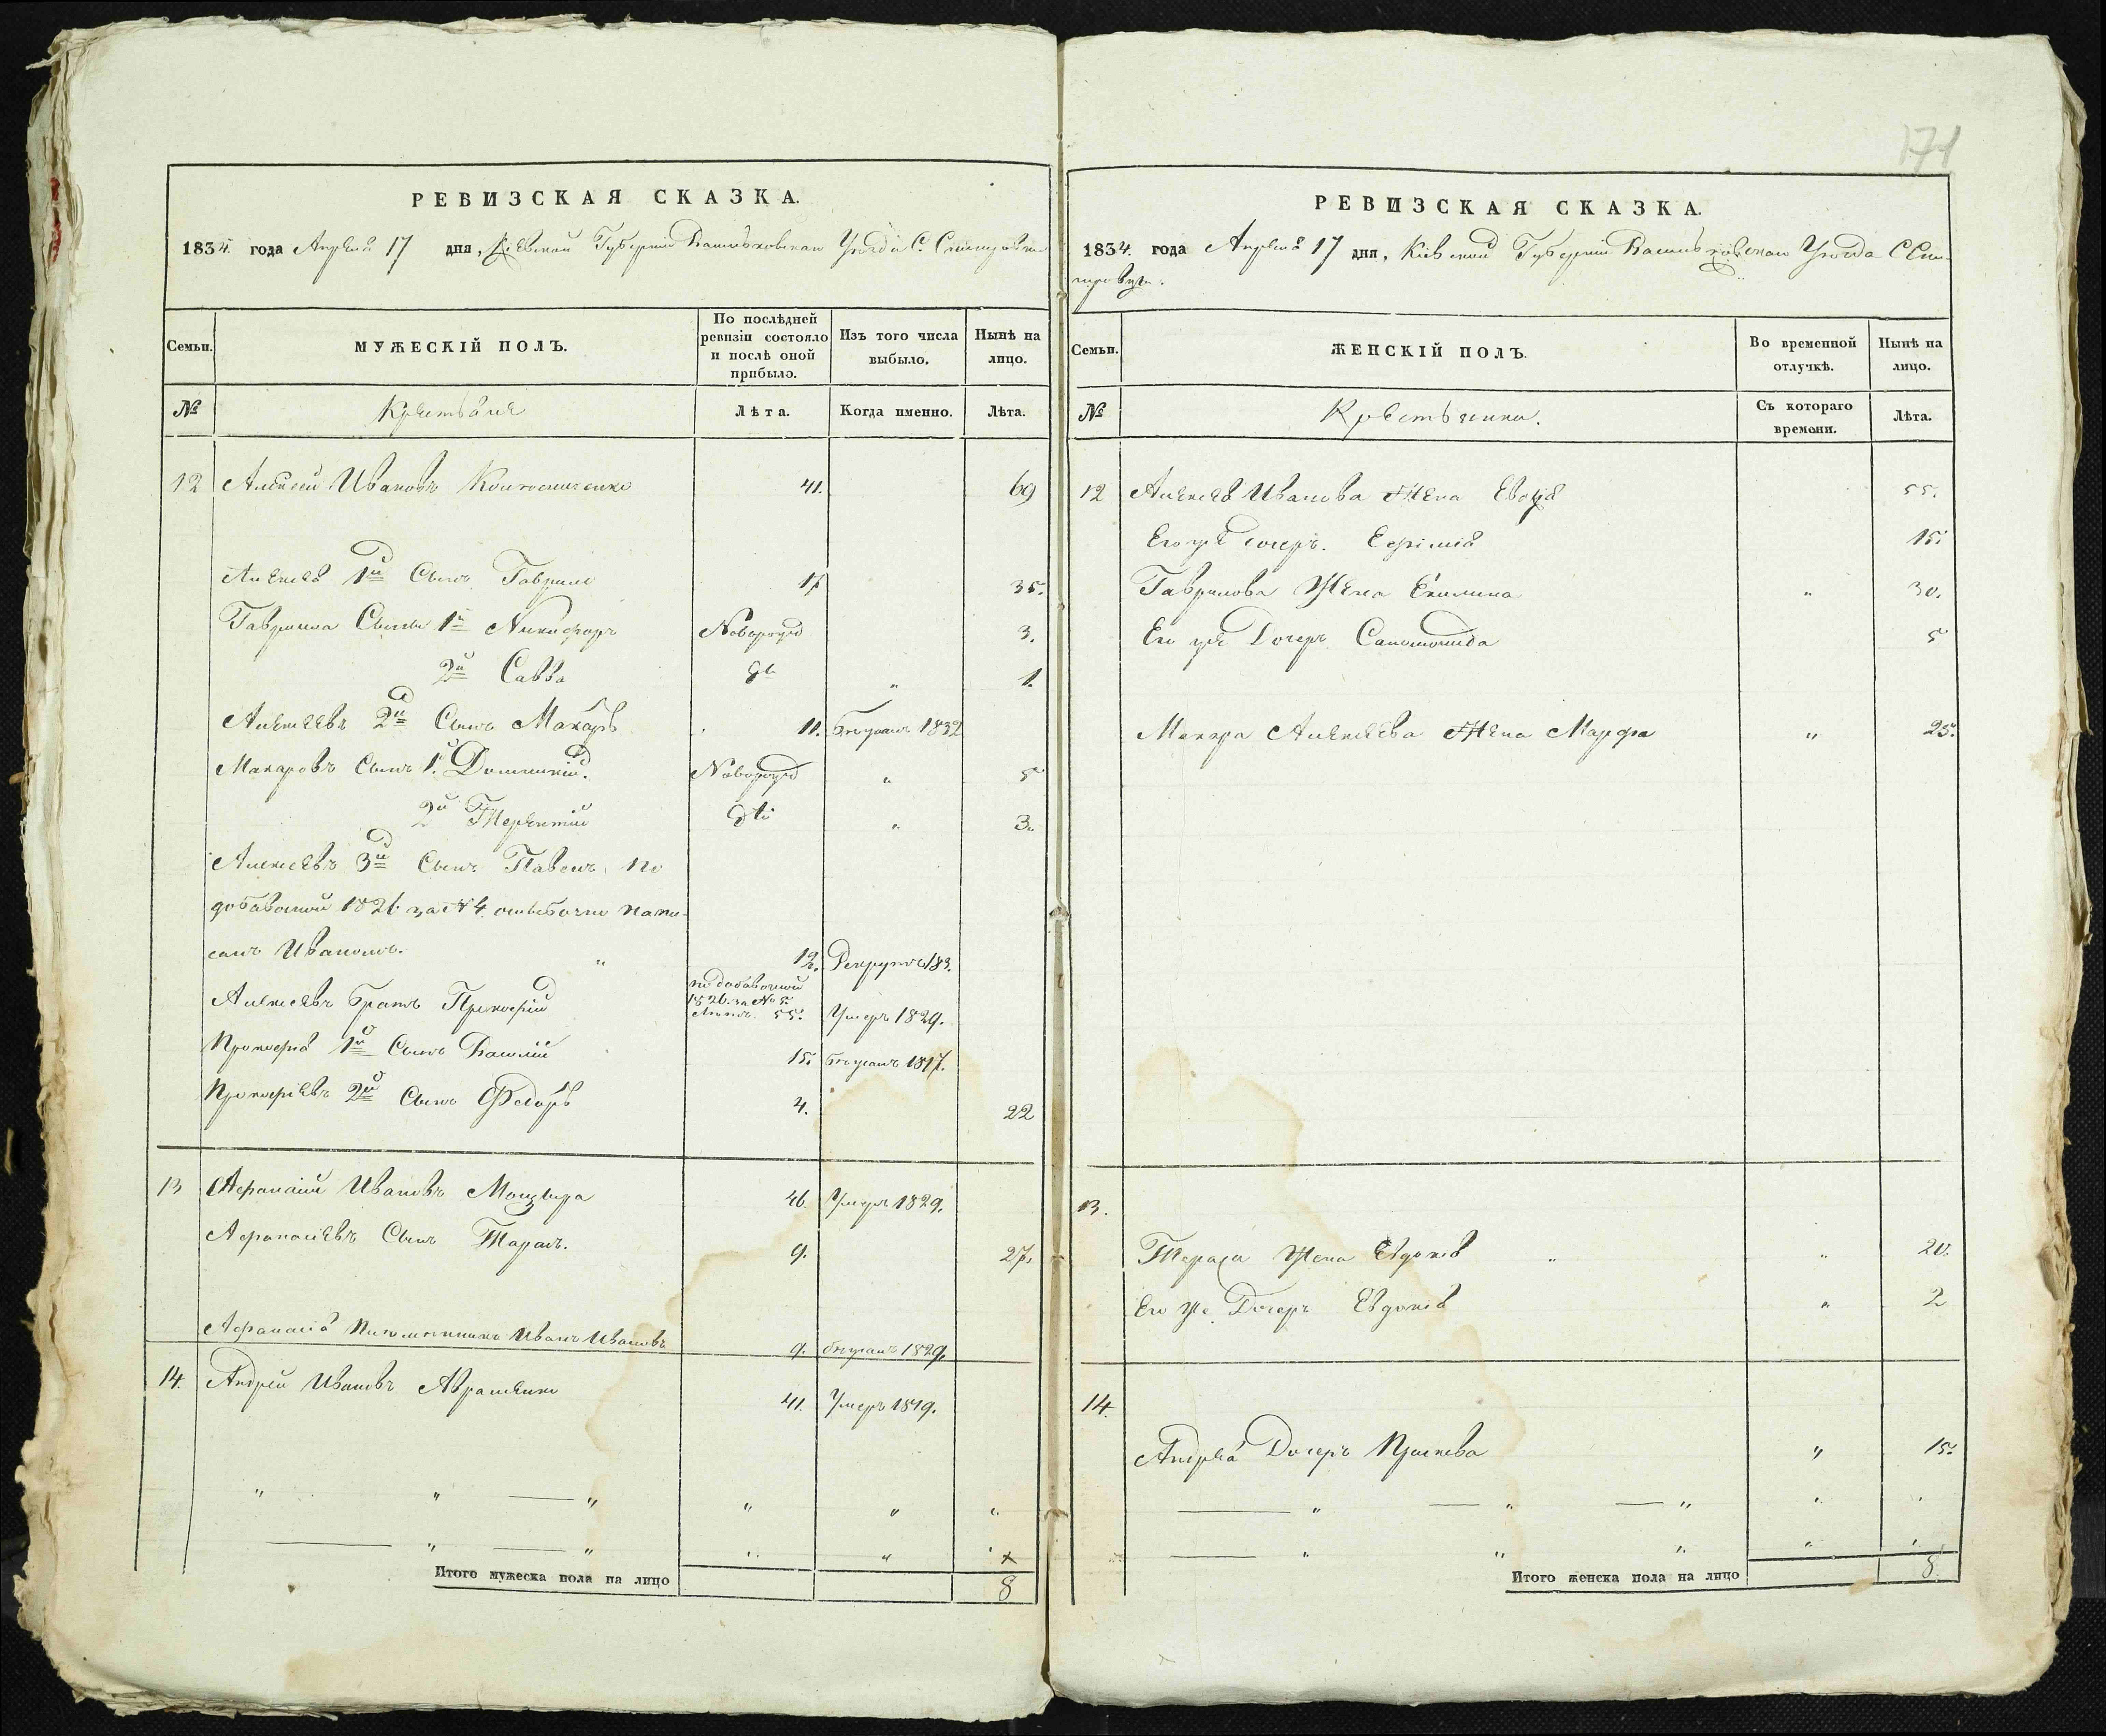 171
РЕВИЗСКАЯ СКАЗКА.
1834. года Апреля 17 дня, Кіевской Губерніи Васильковскаго Уезда С.
Семьи.
МУЖЕСКІЙ ПОЛЪ.
По послѣдней ревизіи состояло и послѣ оной прибыло.
Изъ того числа выбыло.
Нынѣ на лицо.
№
Крестьяне
Лѣта.
Когда именно.
Лѣта.
12 Алексей Ивановъ 41. 69
Алексея 1й Сынъ Гаврило 17 35.
Гаврила Сыны 1й Никифоръ Новорожд 3.
2й Савва 1.
Алексеевъ 2й Сынъ Макаръ 11. Бежалъ 1832
Макаровъ Сынъ 1й Новорожд 5
2й Терентій 3.
Алексеевъ 3й Сынъ Павелъ по
добавочной 1826 за №4 ошибочно напи-
санъ Иваномъ. 12. Рекрутъ 183.
Алексеевъ Братъ Прокофій по добавочной 1826 за № 5. 55. Умеръ 1829.
Прокофія 1й Сынъ Василій 15. Бежалъ 1817.
Прокофіевъ 2й Сынъ Федоръ 4. 22
13 Афанасій Ивановъ 46. Умеръ 1829.
Афанасіевъ Сынъ Тарасъ. 9. 27.
Афанасія Иванъ Ивановъ 9. бежалъ 1829.
14. Андрей Ивановъ Авраменко 41. Умеръ 1819.
Итого мужеска пола на лицо 8
РЕВИЗСКАЯ СКАЗКА.
1834. года Апреля 17 дня, Кіевской Губерніи Васильковскаго Уезда С
Семьи.
ЖЕНСКІЙ ПОЛЪ.
Во временной отлучкѣ.
Нынѣ на лицо.
№
Крестьянки.
Съ котораго времени.
Лѣта.
12 Алексея Иванова Жена 55.
Его же дочерь. 15.
Гаврилова Жена 30.
Его же Дочерь 5
Макара Алексеева Жена Марфа 25.
13.
Тараса Жена Евдокія 20.
Его же Дочерь Евдокія 2
14.
Андрея Дочерь 15.
Итого женска пола на лицо 8.